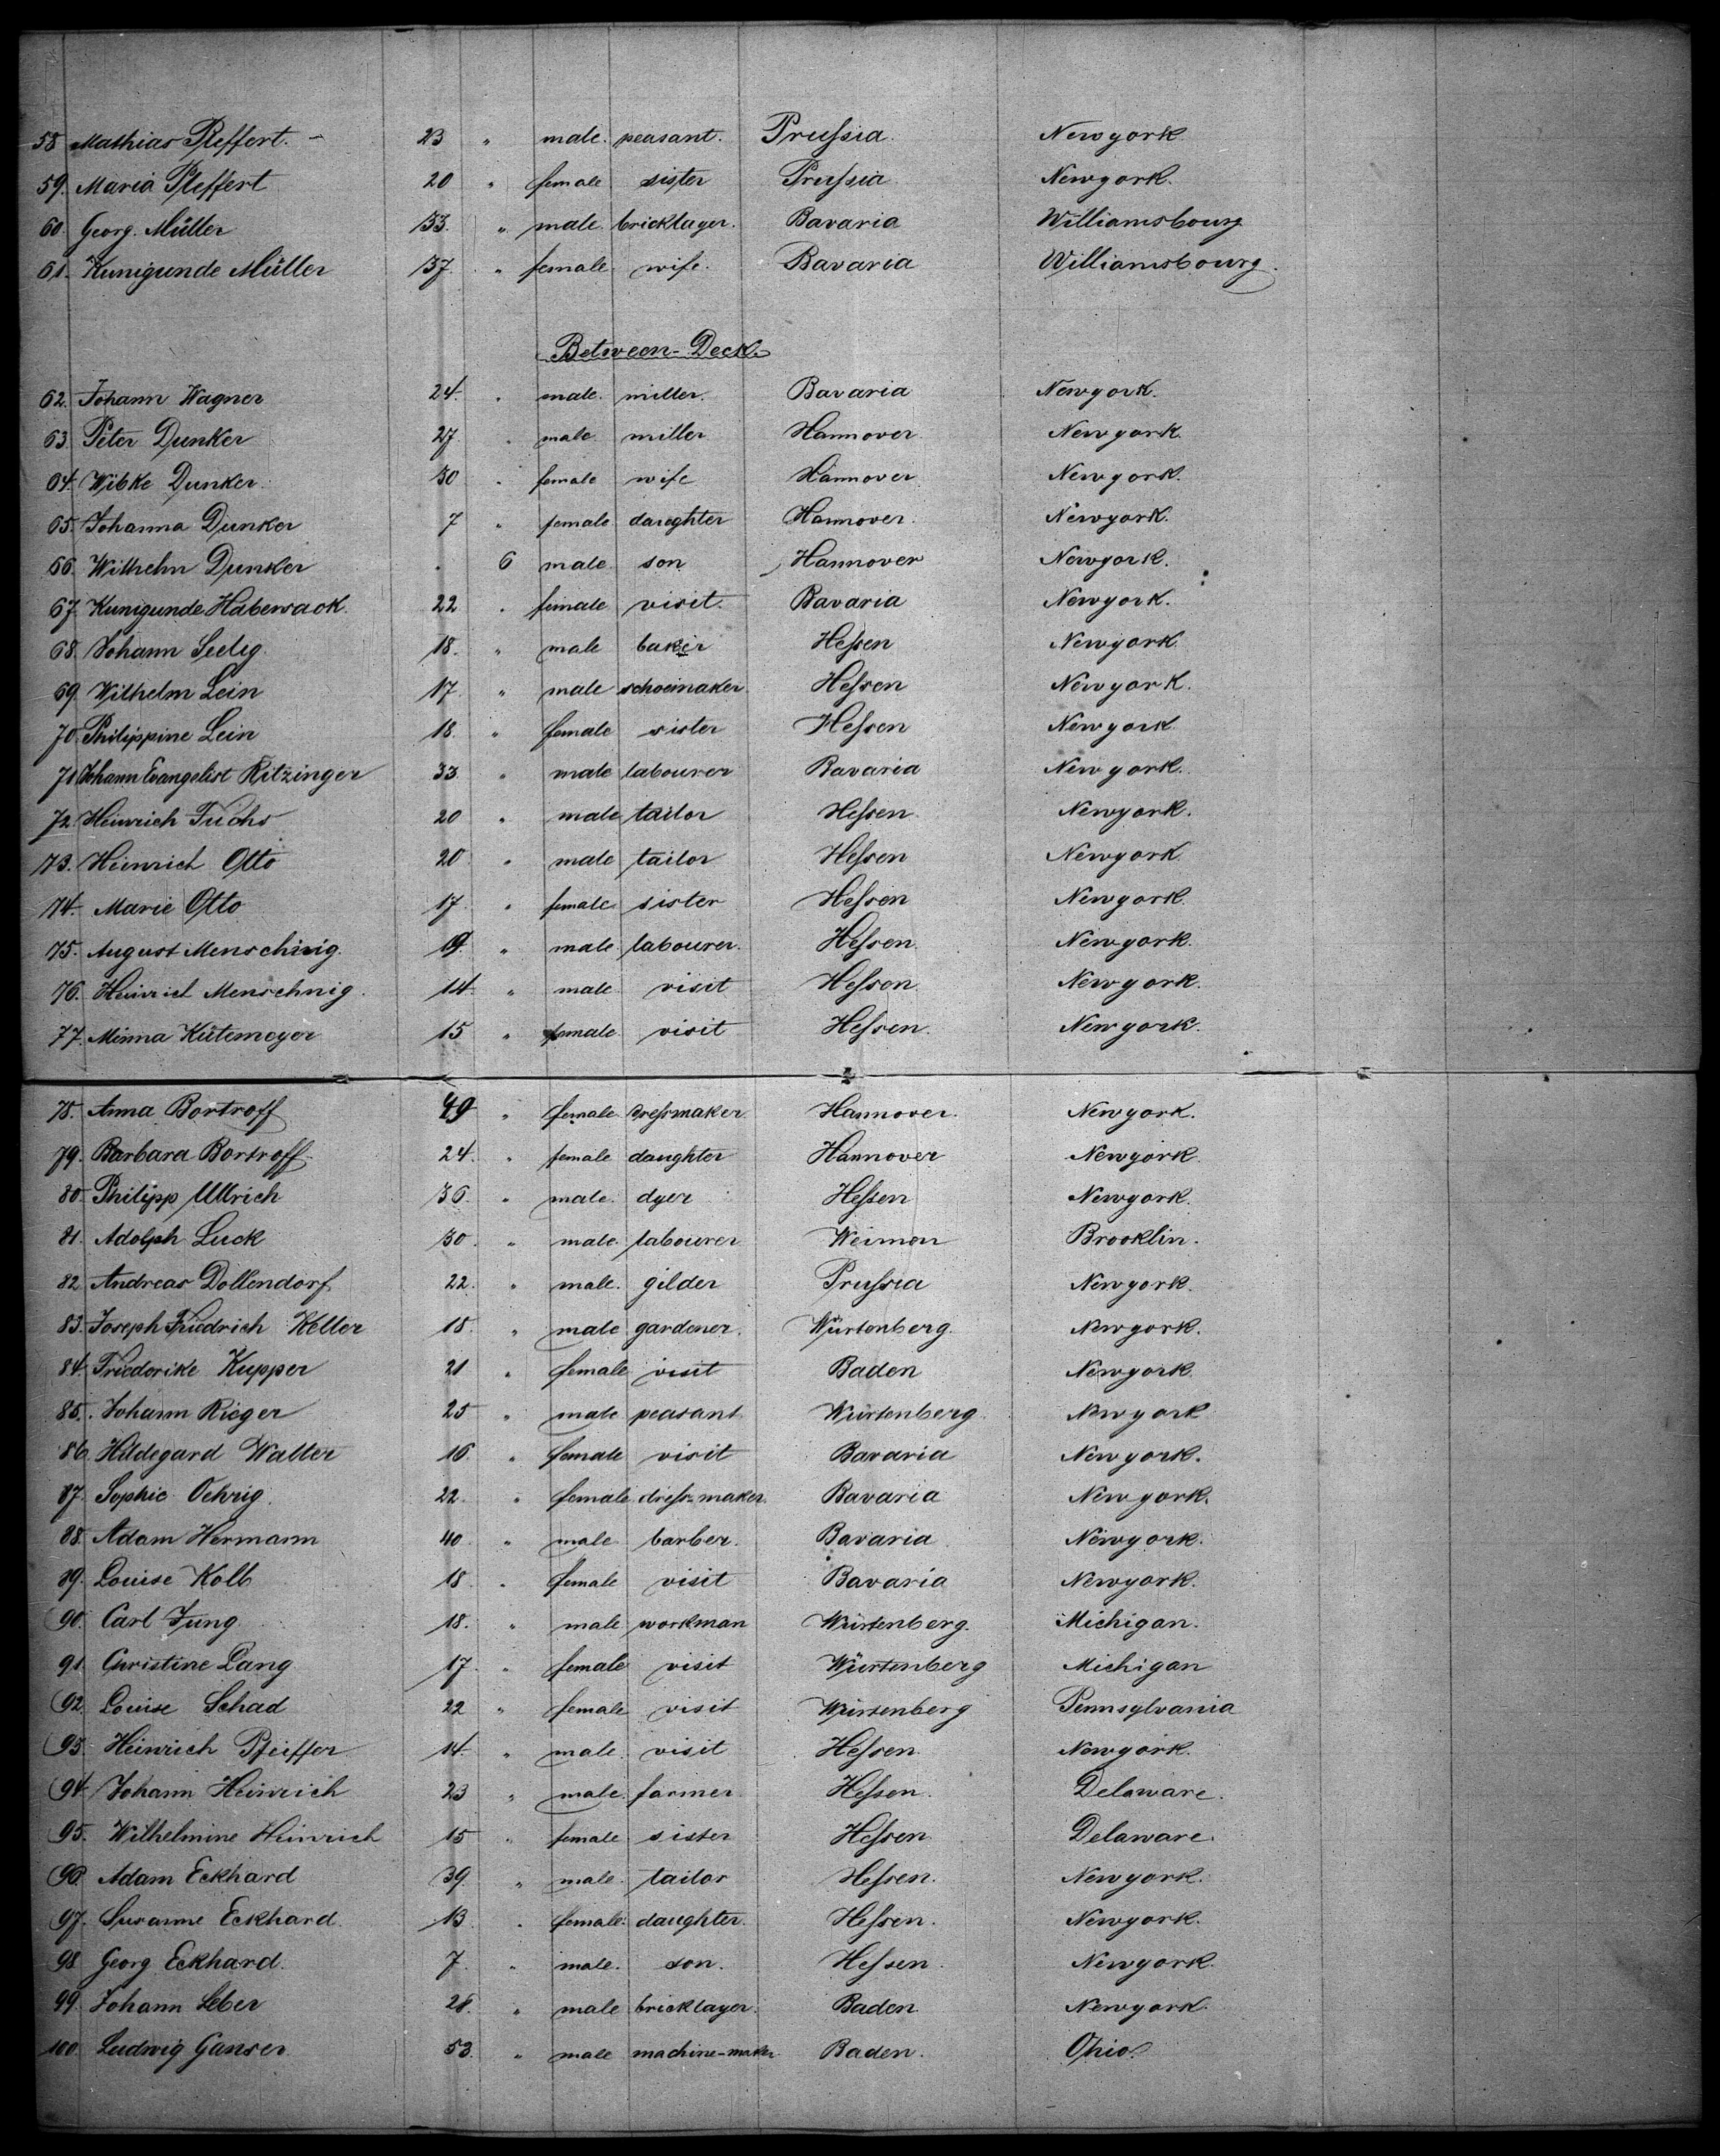 58 Mathias Pleffert. – 23 " male. peasant. Prussia. Newyork.
59. Maria Pleffert 20 " female sister Prussia Newyork.
60. Georg. Müller 33. " male. bricklayer. Bavaria Williamsbourg
61. Kunigunde Müller 37. " female wife. Bavaria Williamsbourg.
Between-Deck.
62. Johann Wagner 24. " male. miller. Bavaria Newyork.
63. Peter Dunker 27. " male. miller Hannover. Newyork.
64. Wibke Dunker. 30 " female wife Hannover. Newyork.
65. Johanna Dunker 7 " female daughter Hannover. Newyork.
66. Wilhelm Dunker . 6 male son Hannover Newyork.
67. Kunigunde Habersack. 22 " female visit. Bavaria Newyork.
68. Johann Seelig. 18. " male baker Hessen Newyork.
69. Wilhelm Lein 17. " male schoemaker. Hessen Newyork.
70. Philippine Lein 18. " female sister Hessen Newyork.
71. Johann Evangelist Ritzinger 33 " male labourer Bavaria Newyork.
72. Heinrich Fuchs 20 " male tailor Hessen. Newyork.
73. Heinrich Otto 20 " male tailor Hessen Newyork.
74. Marie Otto 17. " female sister Hessen Newyork.
75. August Menschnig. 19. " male. labourer. Hessen. Newyork.
76. Heinrich Menschnig. 14. " male. visit Hessen. Newyork.
77. Minna Kütemeyer 15 " female. visit Hessen. Newyork.
78. Anna Bortroff 49 " female. dressmaker. Hannover. Newyork.
79. Barbara Bortroff. 24. " female daughter Hannover Newyork.
80. Philipp Ullrich 36. " male. dyer Hessen Newyork.
81. Adolph Luck 30. " male. labourer Weimen Brooklin.
82. Andreas Dollendorf. 22. " male. gilder Prussia Newyork.
83. Joseph Friedrich Keller 18. " male gardener. Würtenberg. Newyork.
84. Friederike Kupper 21 " female visit Baden Newyork.
85. Johann Rieger 25 " male peasant Würtenberg. Newyork
86. Hildegard Walter 16. " female visit Bavaria Newyork.
87. Sophie Oehrig. 22. " female. dress-maker. Bavaria Newyork.
88. Adam Hermann 40. " male barber. Bavaria. Newyork.
89. Louise Kolb 18. " female visit Bavaria Newyork.
90. Carl Jung 18. " male workman Würtenberg. Michigan.
91. Christine Lang 17. " female visit Würtenberg Michigan
92. Louise Schad 22 " female visit Würtenberg Pennsylvania
93. Heinrich Pfeiffer 14. " male. visit Hessen. Newyork.
94. Johann Heinrich 23 " male. farmer. Hessen. Delaware.
95. Wilhelmine Heinrich 15 " female sister Hessen Delaware.
96. Adam Eckhard 39. " male. tailor Hessen. Newyork.
97. Susanne Eckhard. 13. " female. daughter. Hessen. Newyork.
98. Georg Eckhard. 7. " male. son. Hessen. Newyork.
99. Johann Leber 28. " male bricklayer. Baden Newyork.
100. Ludwig Ganser 53. " male machine-maker Baden. Ohio.